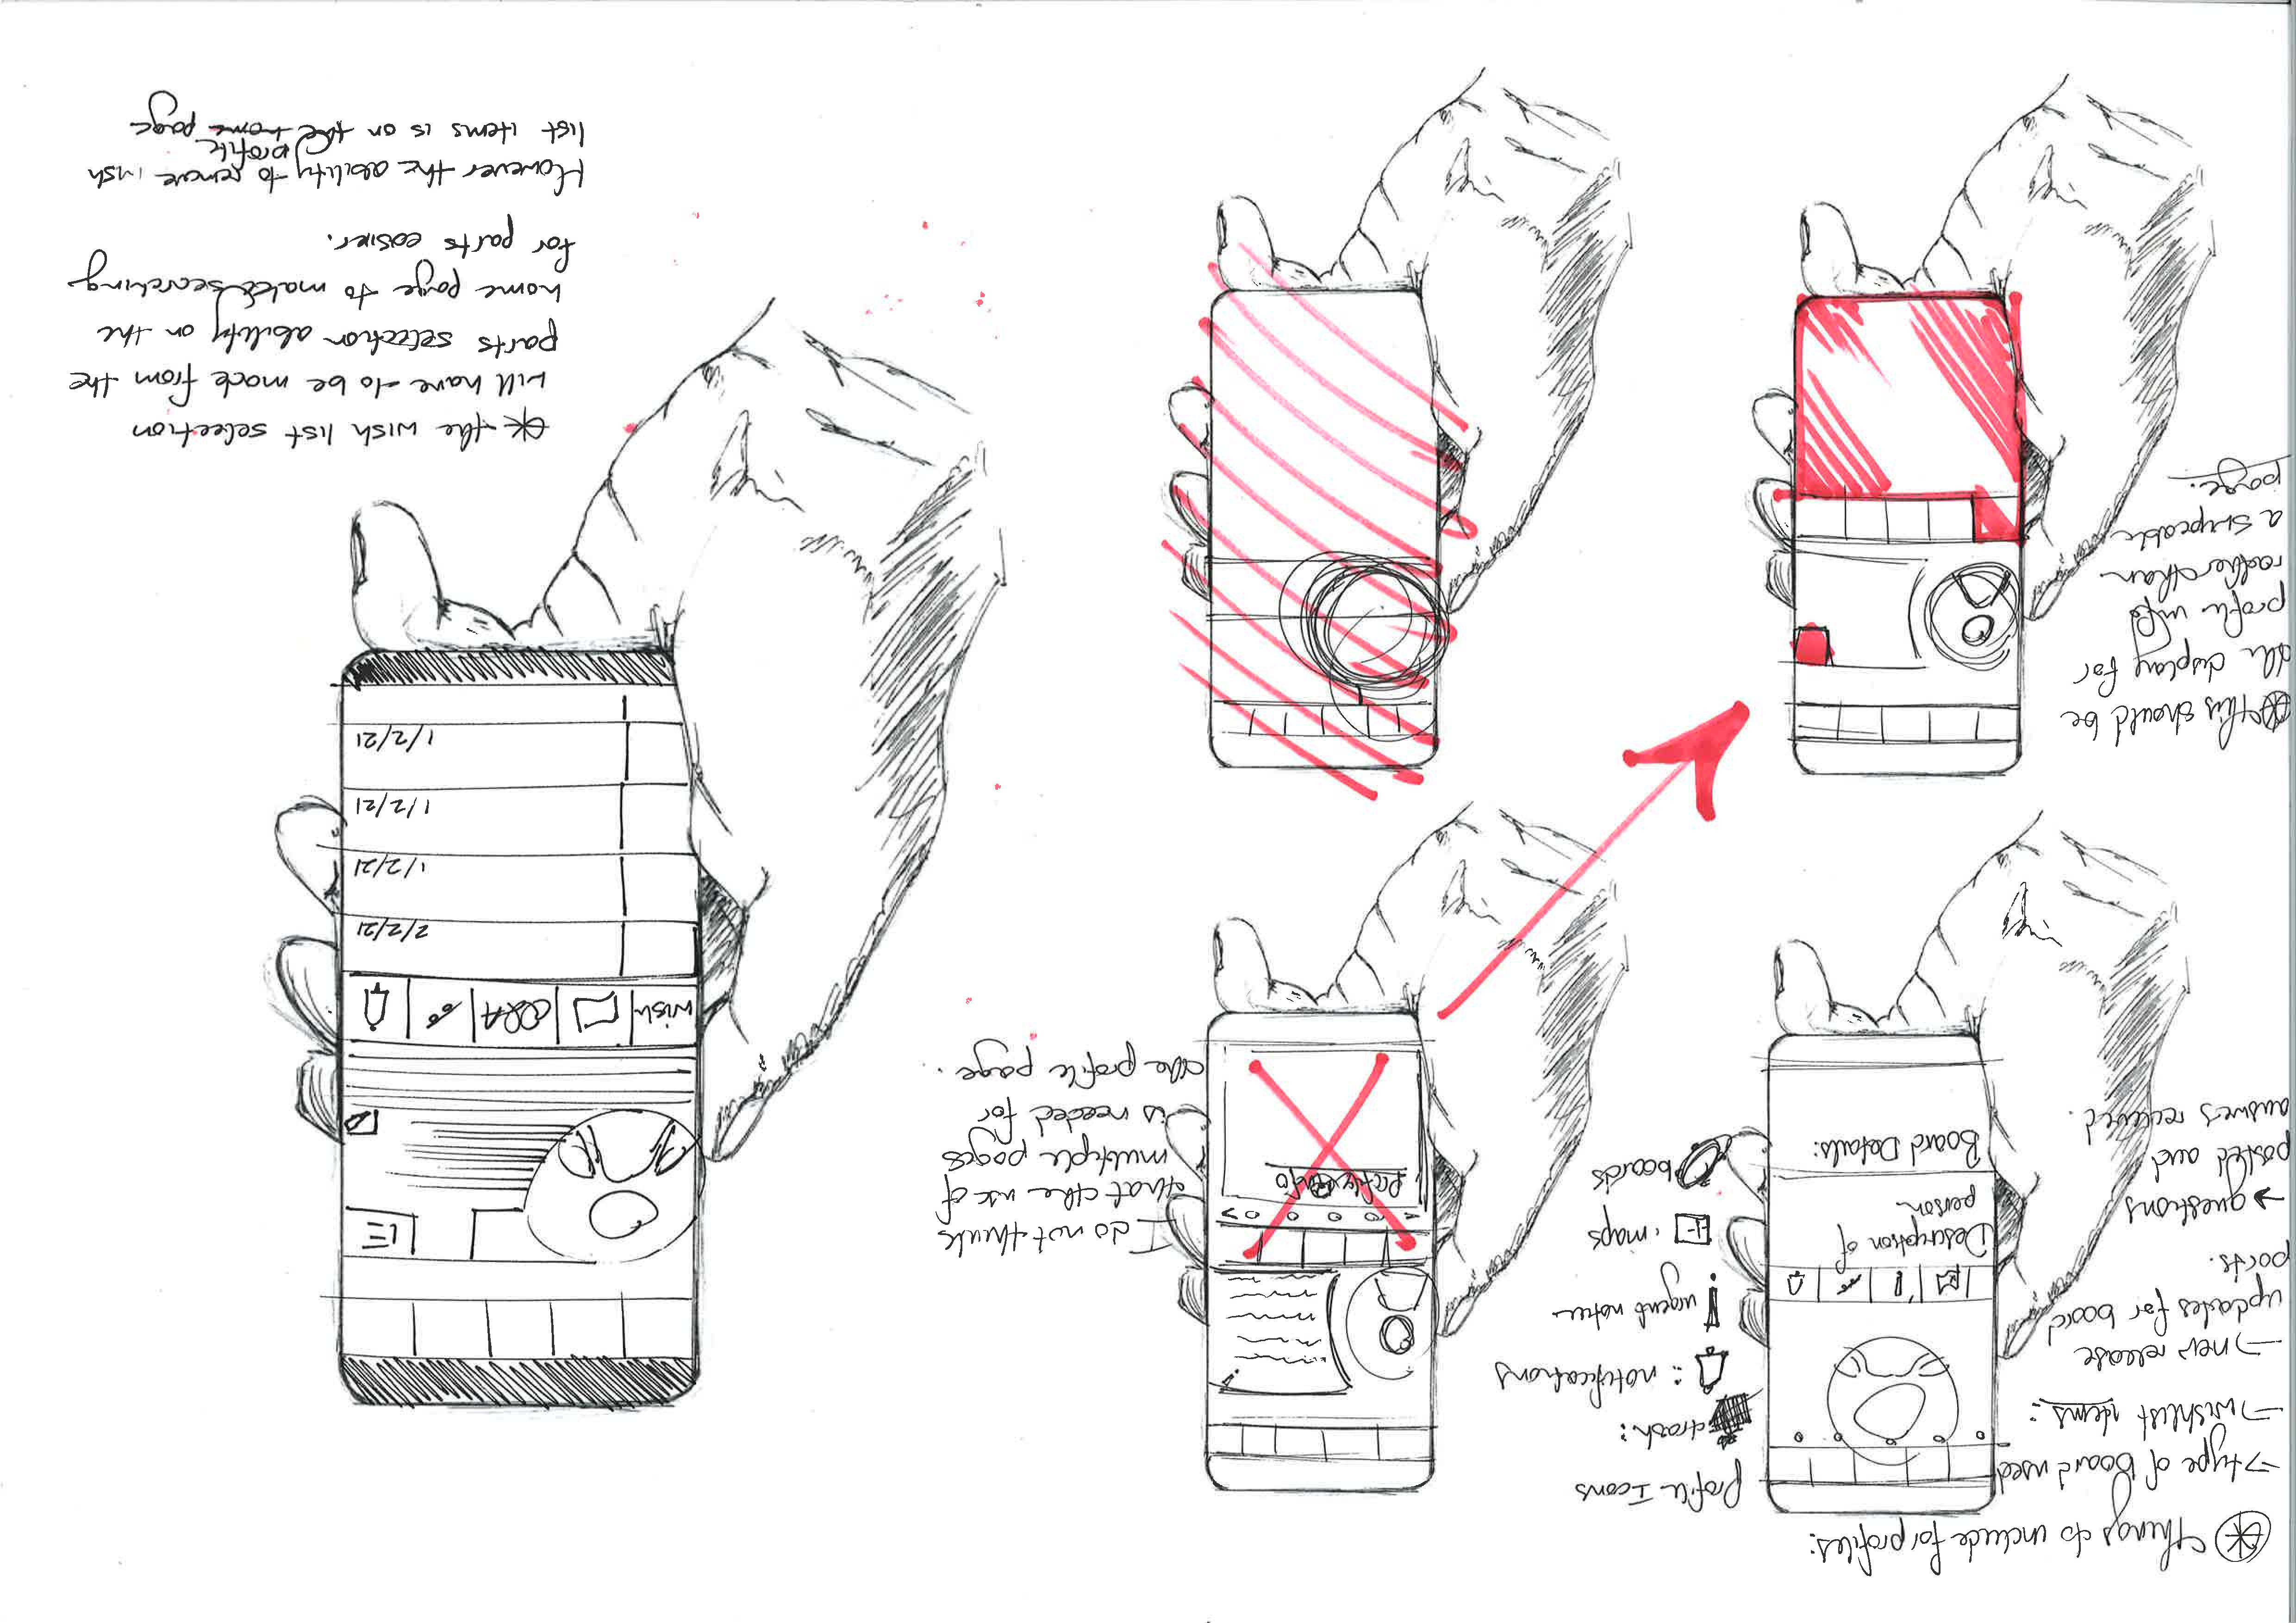 Things to include for profiles:
→ type of board used
→ wishlist items:
→ new release
updates for board
parts.
→ questions
posted and
answers recieved.
Description of
person
Board Details:
Profile Icons
trash:
: notifications
urgent notice
: maps
boards
Profile Info
I do not think
that the use of
multiple pages
is needed for
the profile page.
This should be
the display for
profile info
rather than
a swipeable
page.
wish
Q&A
2/2/21
1/2/21
1/2/21
1/2/21
the wish list selection
will have to be made from the
parts selection ability on the
home page to make searching
for parts easier.
However the ability to remove wish
profile
list items is on the home page